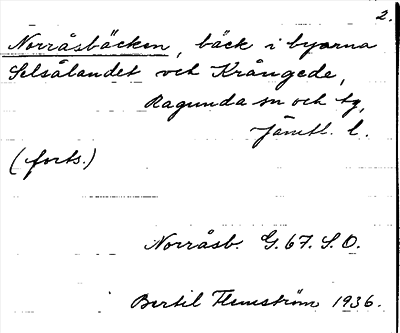 2.
Norråsbäcken, bäck i byarna
Selsålandet och Krångede,
Ragunda sn och tg,
Jämtl. l.
(forts.)
Norråsb. G. 67. S. O.
Bertil Flemström 1936.